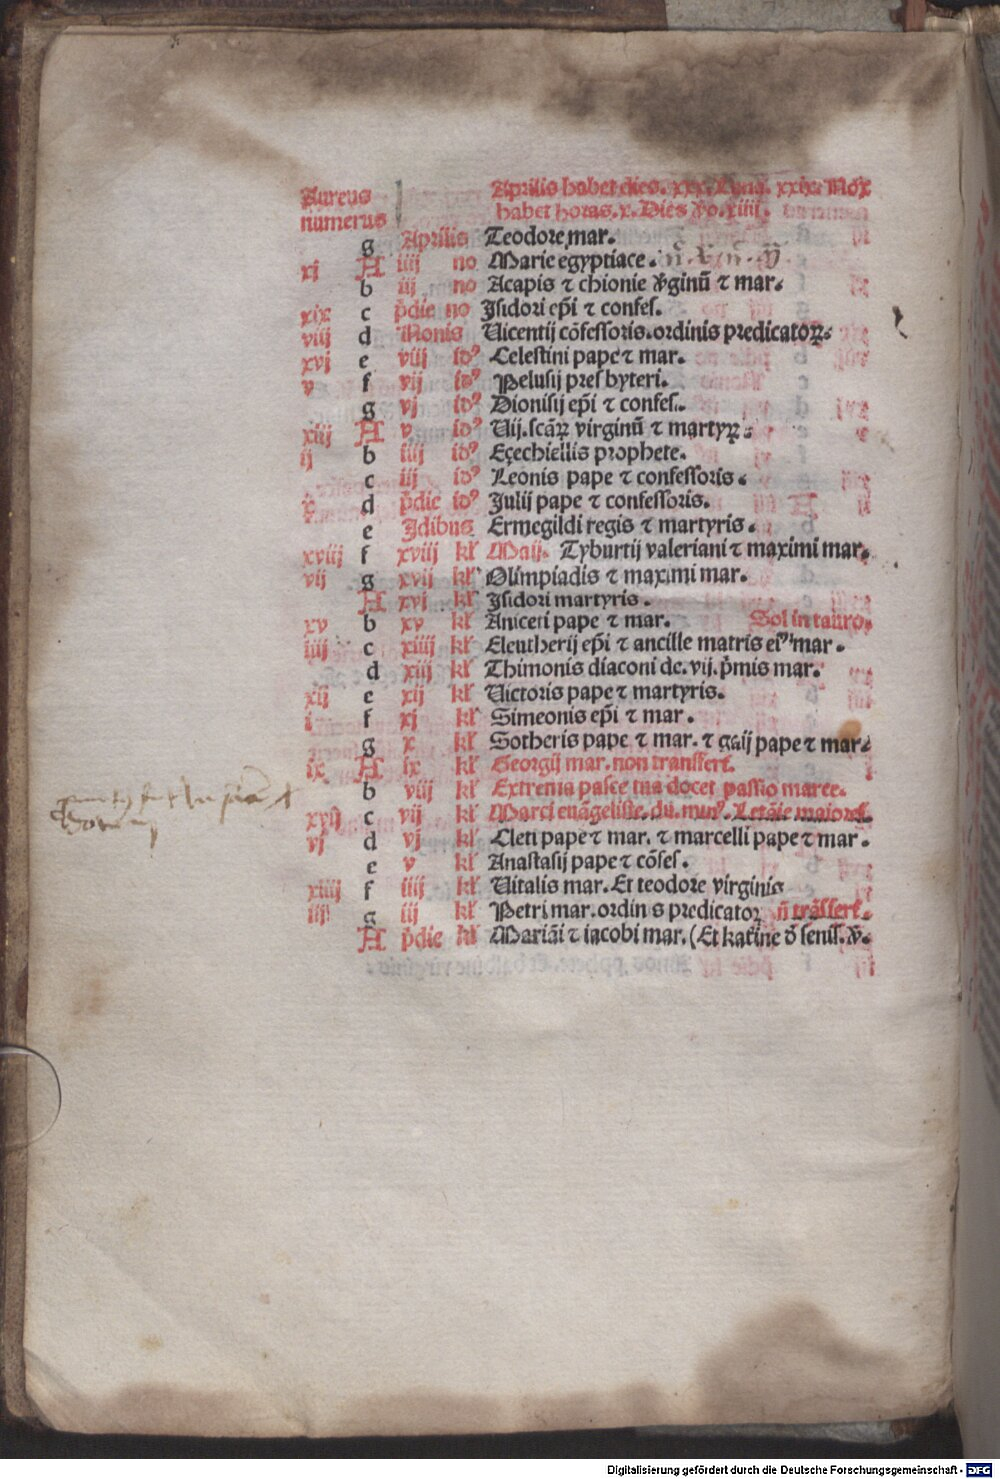 Aureus numerus
Aprilis habet dies. xxx. Luna. xxix. Nox
habet horas. x. Dies v̾o. xiiij.
g Aprilis Teodore mar.
xj A iiij no Marie egyptiace.
b iij no Acapis ⁊ chionie v̾ginū ⁊ mar.
xix c p̄die no Jsidori ep̄i ⁊ confes.
viij d Nonis Uicentij cōfessoris. ordinis predicatoꝝ.
xvj e viij idꝰ Celestini pape ⁊ mar.
v f vij idꝰ Pelusij presbyteri.
g vj idꝰ Dionisij ep̄i ⁊ confes.
xiij A v idꝰ Uij. scāꝝ virginū ⁊ martyꝝ.
ij b iiij idꝰ Eçechiellis prophete.
c iij idꝰ Leonis pape ⁊ confessoris.
x d p̄die idꝰ Julij pape ⁊ confessoris.
e Jdibus Ermegildi regis ⁊ martyris.
xviij f xviij kl' Maij. Tyburtij valeriani ⁊ maximi mar.
vij g xvij kl' Olimpiadis ⁊ maximi mar.
A xvj kl' Jsidori martyris.
xv b xv kl' Aniceti pape ⁊ mar. Sol in tauro.
iiij c xiiij kl' Eleutherij ep̄i ⁊ ancille matris eiꝰ mar.
d xiij kl' Thimonis diaconi de. vij. p̄mis mar.
xij e xij kl' Uictoris pape ⁊ martyris.
i f xj kl' Simeonis ep̄i ⁊ mar.
g x kl' Sotheris pape ⁊ mar. ⁊ gaij pape ⁊ mar.
ix A ix kl' Georgij mar. non transfert.
b viij kl' Extrema pasce tua docet passio marce.
xvij c vij kl' Marci euāgeliste. du. minꝰ. Letāie maiores.
vj d vj kl' Cleti pape ⁊ mar. ⁊ marcelli pape ⁊ mar.
e v kl' Anastasij pape ⁊ cōfes.
xiiij f iiij kl' Uitalis mar. Et teodore virginis
iij g iij kl' Petri mar. ordinis predicatoꝝ n̄ trāsfert.
A p̄die kl' Mariāi ⁊ iacobi mar. (Et katīne d̄ senis. v̾.
Digitalisierung gefördert durch die Deutsche Forschungsgemeinschaft - DFG